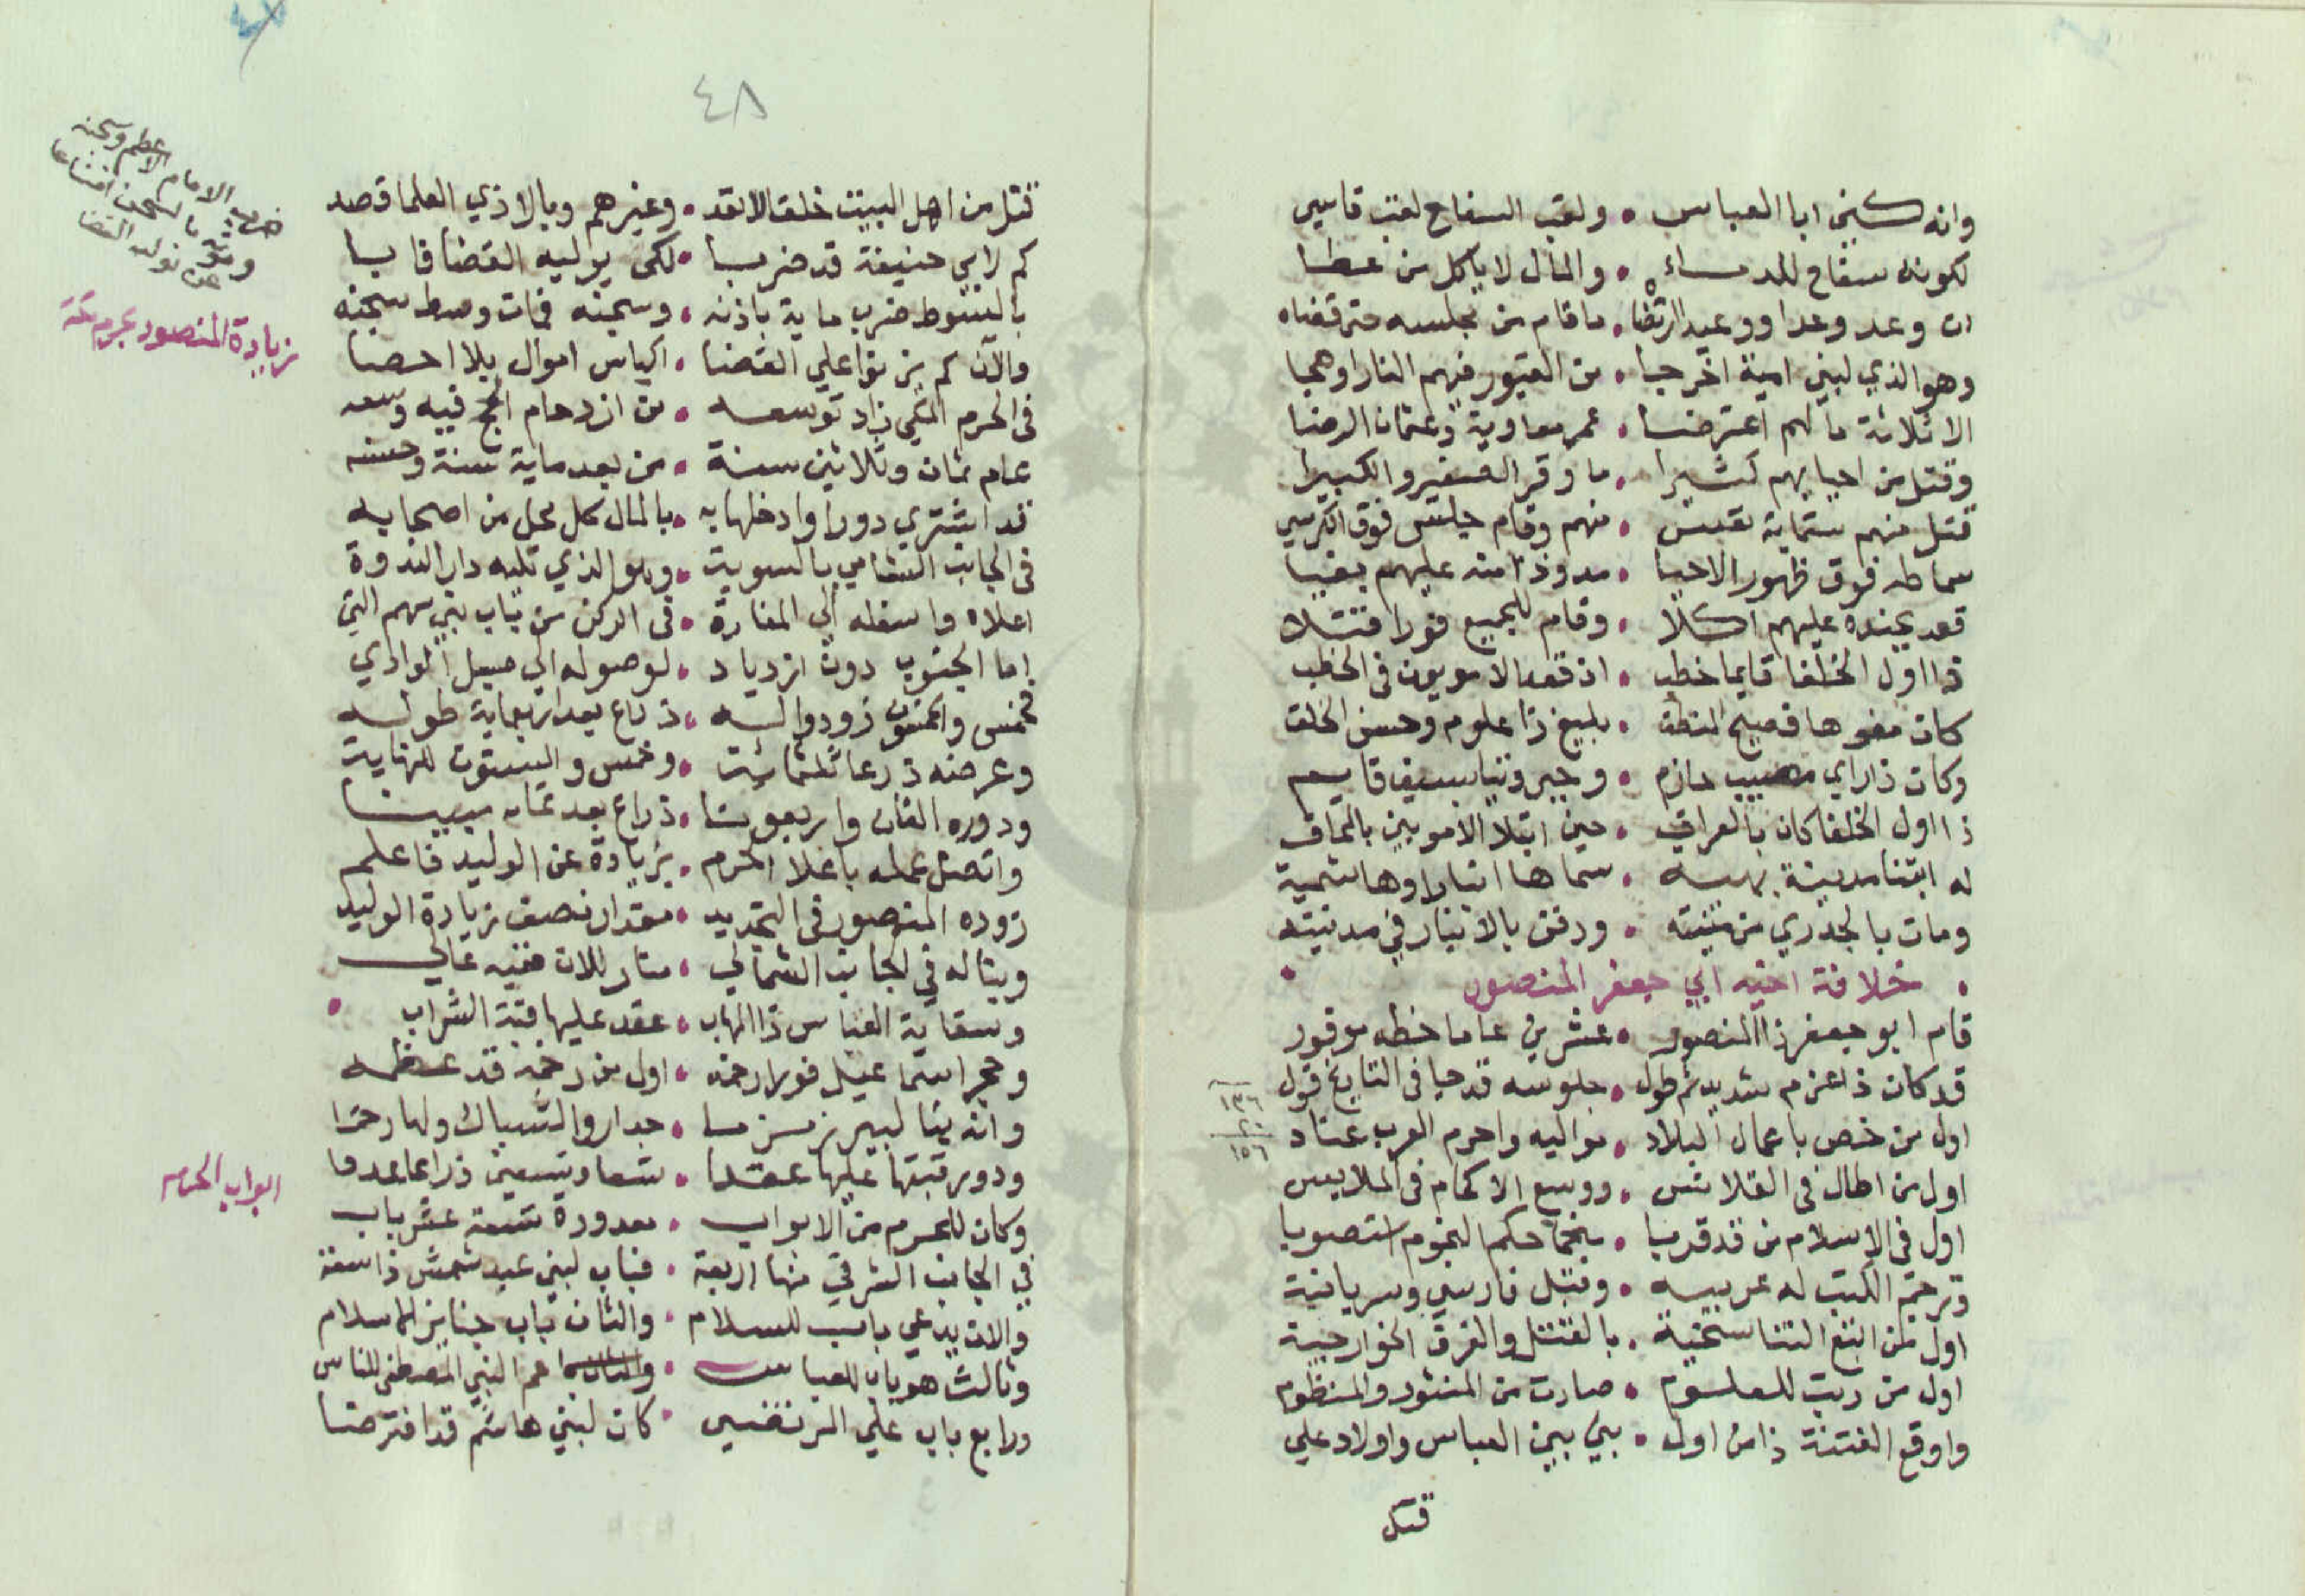 وانه كني ابا العباس • ولقب السفاح لقب قاسي
لكونه سفاح للدماء • والمال لا ياكل من عطا
ان وعد وعدا ووعيد ارتضا • ما قام من مجلسه حتى قضاه
وهو الذي لبني امية اخرجا • من القبور فيهم النار اوهجا
الا ثلاثة ما لهم اعترضا • عمر معاوية وعثمان الرضا
وقتل من احيايهم كثيرا • ما وقر الصغير والكبيرا
قتل منهم ستماية نفس • منهم وقام جلس فوق الكرسي
سماطه فوق ظهور الاحيا • مدوذا منه عليهم بغيا
قعد بجنده عليهم اكلا • وقام للجميع فورا قتلا
ذا اول الخلفا قايما خطب • اذ قعد الامويون في الخطب
كان مفوها فصيح المنطق • بليغ ذا علوم وحسن الخلق
وكان ذا راي مصيب حازم • وجبروتيا بسيف قايم
ذا اول الخلفا كان بالعراق • حين ابتلا الامويين بالمحاق
له ابتنا مدينة بهيه • سماها انبارا وهاشمية
ومات بالجدري من منيته • ودفن بالانبار في مدنيته
• خلافة اخيه ابي جعفر المنصور •
قام ابو جعفر ذا المنصور • عشرين عاما حظه موفور
قد كان ذا عزم شديد ثم طول • جلوسه قد حيا في التاريخ قول
١٣٦
٢٠
١٥٦
اول من خص باعمال البلاد • مواليه واحرم العرب عناد
اول من اطال في القلانس • ووسع الاكمام في الملابس
اول في الاسلام من قد قربا • منجما حكم النجوم استصوبا
وترجم الكتب له عربيه • وقبل فارسي وسريانية
اول من اتبع التناسخية • بالقتل والفرق الخوارجية
اول من رتب للعلوم • صارت من المنثور والمنظوم
واوقع الفتنة ذا من اول • بني بين العباس واولاد علي
قتل
٤٨
قتل من اهل البيت خلق لا تعد • وغيرهم وبالاذي العلما قصد
كم لابي حنيفة قد ضربا • لكي يوليه القضا فابا
بالسوط ضرب ماية باذنه • وسجنه فمات وسط سجنه
والآن كم بز نوا علي القضا • اكياس اموال بلا احصا
في الحرم المكي زاد توسعه • من ازدحام الحج فيه وسعه
عام ثمان وثلاثين سنة • من بعد ماية سنة وحسنه
قد اشتري دورا وادخلها به • بالمال كل محل من اصحابه
في الجانب الشامي بالسوية • وهو الذي تليه دار الندوة
اعلاه واسفله الي المنارة • في الركن من باب بني سهم التي
اما الجنوب دون ازدياد • لوصوله الي مسيل الوادي
خمس والخمسون زودوا له • ذراع بعد اربعماية طوله
وعرضه ذرعا ثلثمائت • وخمس والستون للنهايت
ودوره اثنان واربعونا • ذراع بعد ثمانه مبينا
واتصل عمله باعلا الحرم • بزيادة عن الوليد فاعلم
زوده المنصور في التجديد • مقدار نصف زيادة الوليد
وبنا له في الجانب الشمالي • منار للان فيه عالي
وسقاية العباس ذا المهاب • عقد عليها قبة الشراب •
وحجر اسماعيل فورا رخمه • اول من رخمه قد عظمه
وانه بنا لبير زمزما • جدار والشباك ولها رخما
ودور قبتها عليها عقدا • تسعا وتسعين ذراعا عددا
وكان للحرم من الابواب • بعدوره تسعة عشر باب
في الجانب الشرقي منها اربعة • فباب لبني عبد شمس ذا سعة
والان يدعي باب للسلام • والثان باب جنايز لاسلام
وثالث هو باب للعباس • عم النبي المصطفى للناس
ورابع باب علي المرتضي • كان لبني هاشم قد افترضا
ضرب الامام الاعظم وسجنه
وموته بالسجن امتناعا
عن توليه القضا
زيادة المنصور بحرم مكة
ابواب الحرم